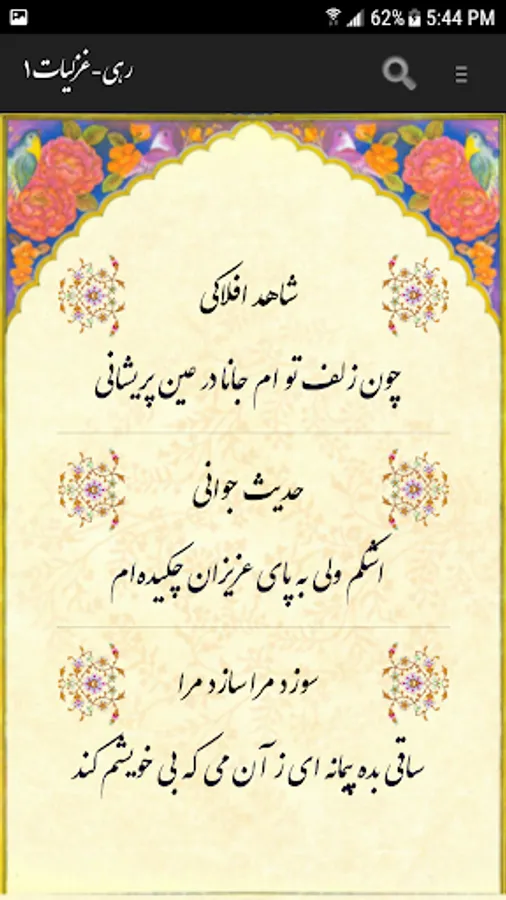 62% 5:44 PM
رهی-غزلیات۱
شاهد افلاکی
چون زلف تو ام جانا در عین پریشانی
حدیث جوانی
اشکم ولی به پای عزیزان چکیده‌ام
سوزد مرا سازد مرا
ساقی بده پیمانه ای ز آن می که بی خویشم کند